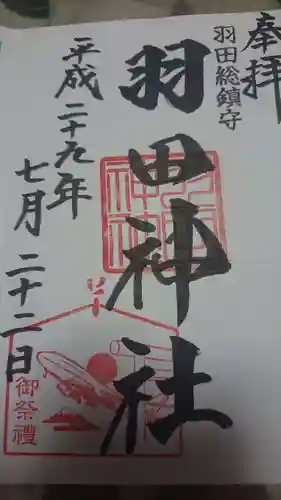 奉拝
羽田総鎮守
羽田神社
平成二十九年
七月二十二日
御祭禮